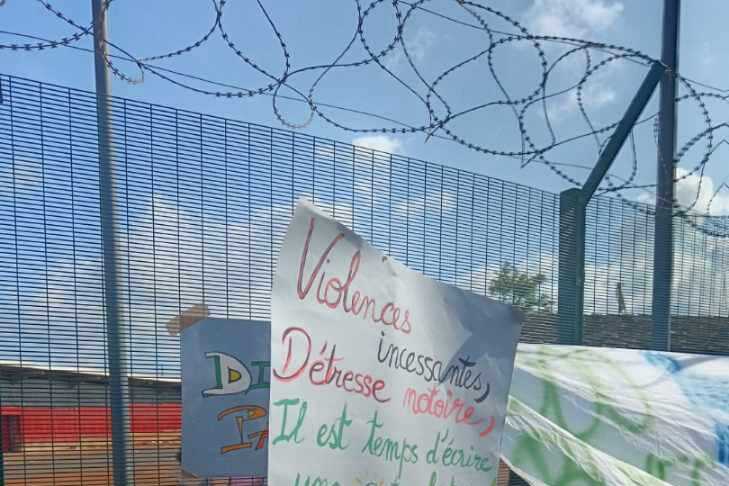 Violences
incessantes,
Détresse notoire,
Il est temps d'écrire
une
DI
PA